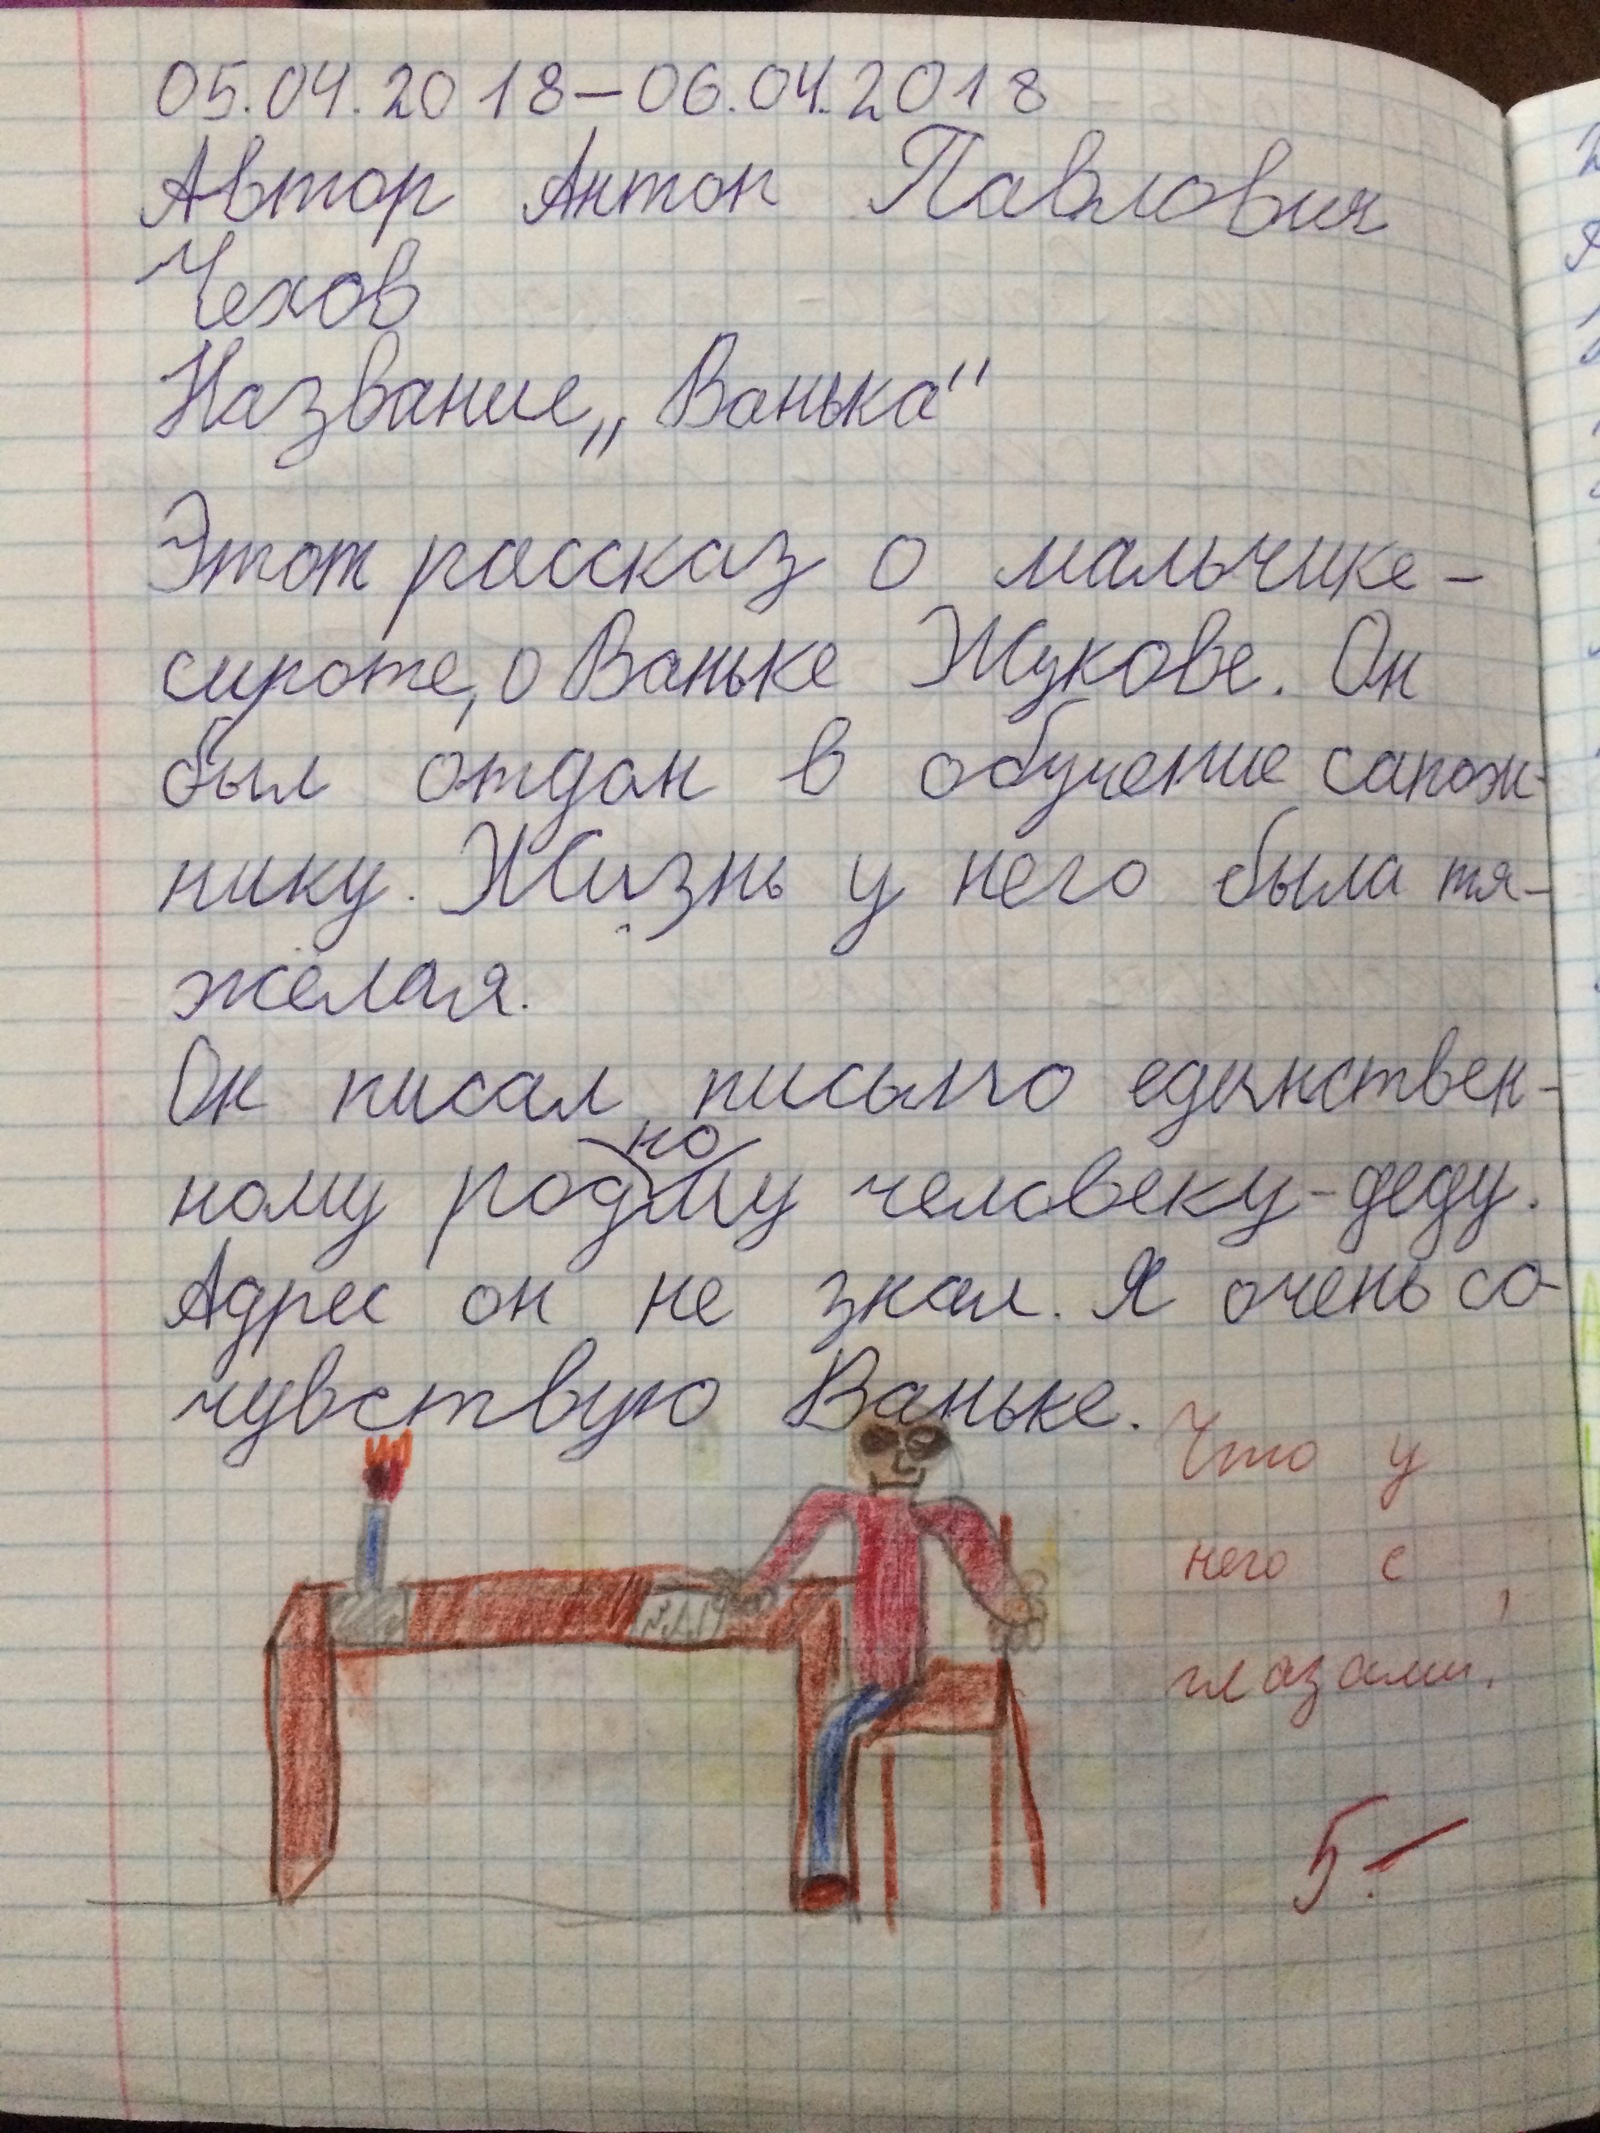 05.04.2018–06.04.2018
Автор Антон Павлович
Чехов
Название „Ванька“
Этот рассказ о мальчике-
сироте, о Ваньке Жукове. Он
был отдан в обучение сапож-
нику. Жизнь у него была тя-
жёлая.
Он писал письмо единствен-
ному родному человеку-деду.
Адрес он не знал. Я очень со-
чувствую Ваньке.
Что у
него с
глазами?
5-